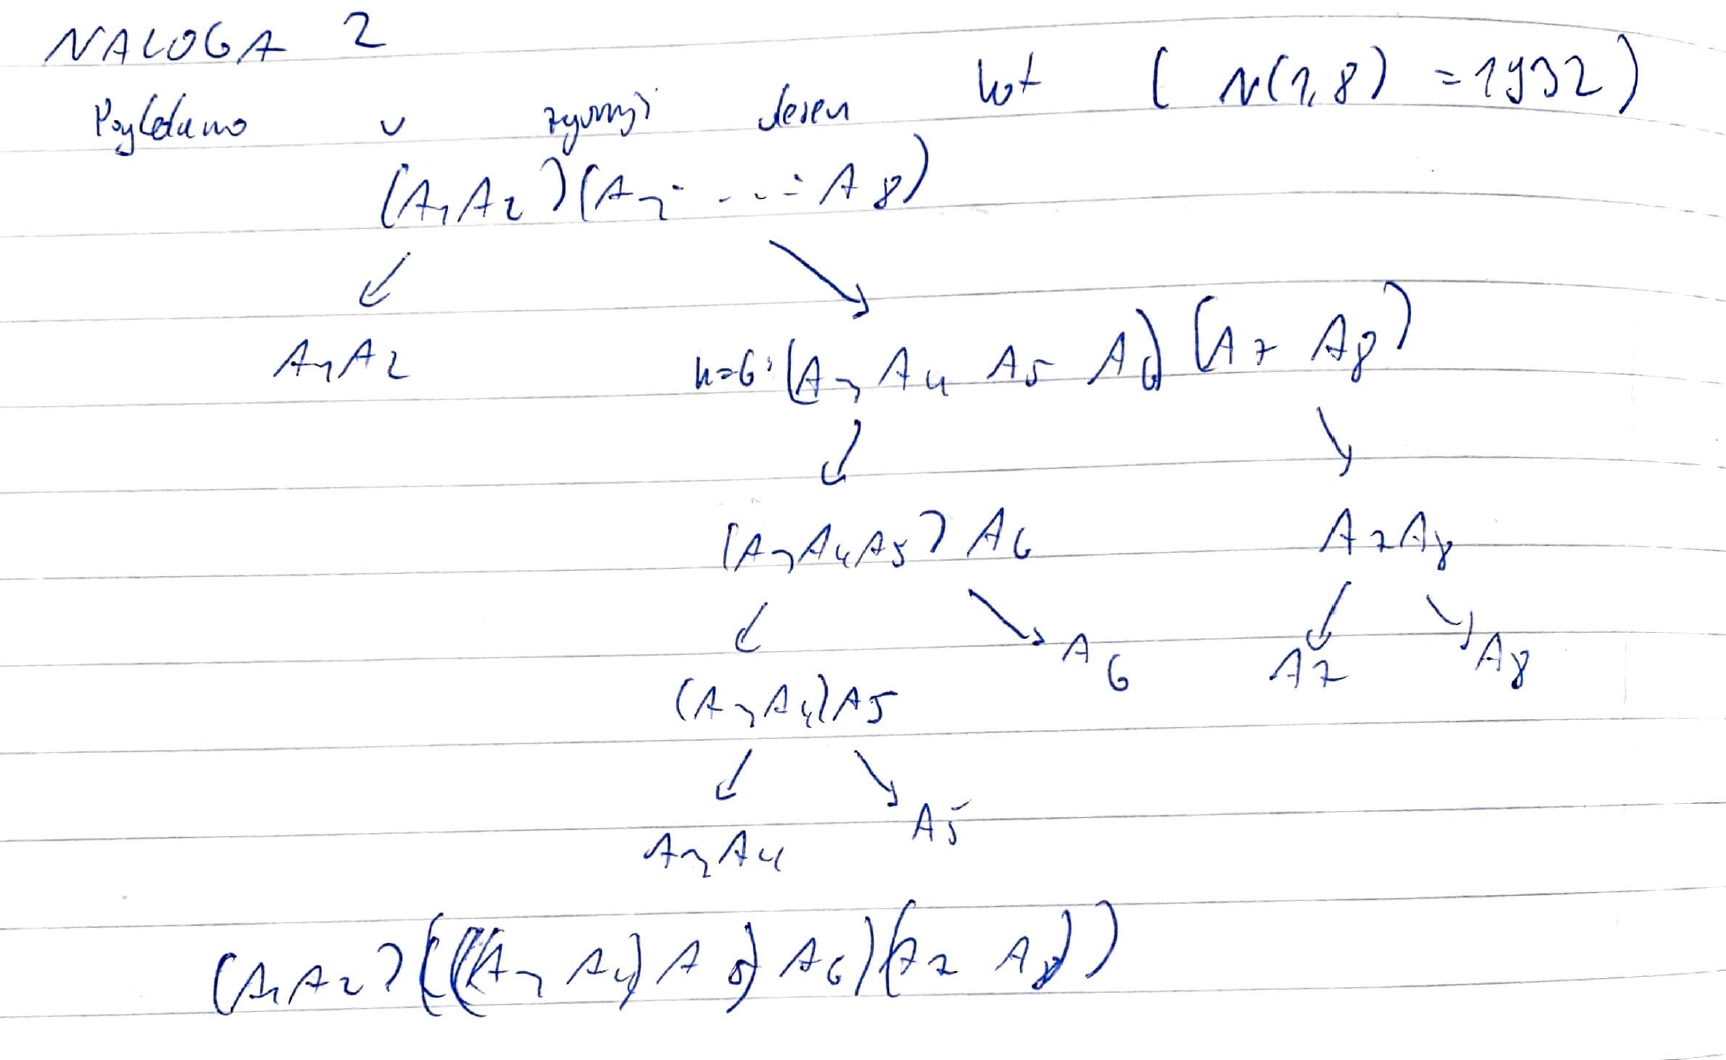 NALOGA 2
Pogledamo v zgornji desen kot ( N(1,8) = 1932)
(A1 A2)(A3 · ... · A8)
A1 A2
k=6: (A3 A4 A5 A6) (A7 A8)
(A3 A4 A5) A6 A7 A8
A6 A7 A8
(A3 A4) A5
A5
A3 A4
(A1 A2)(((A3 A4) A5) A6)(A7 A8))